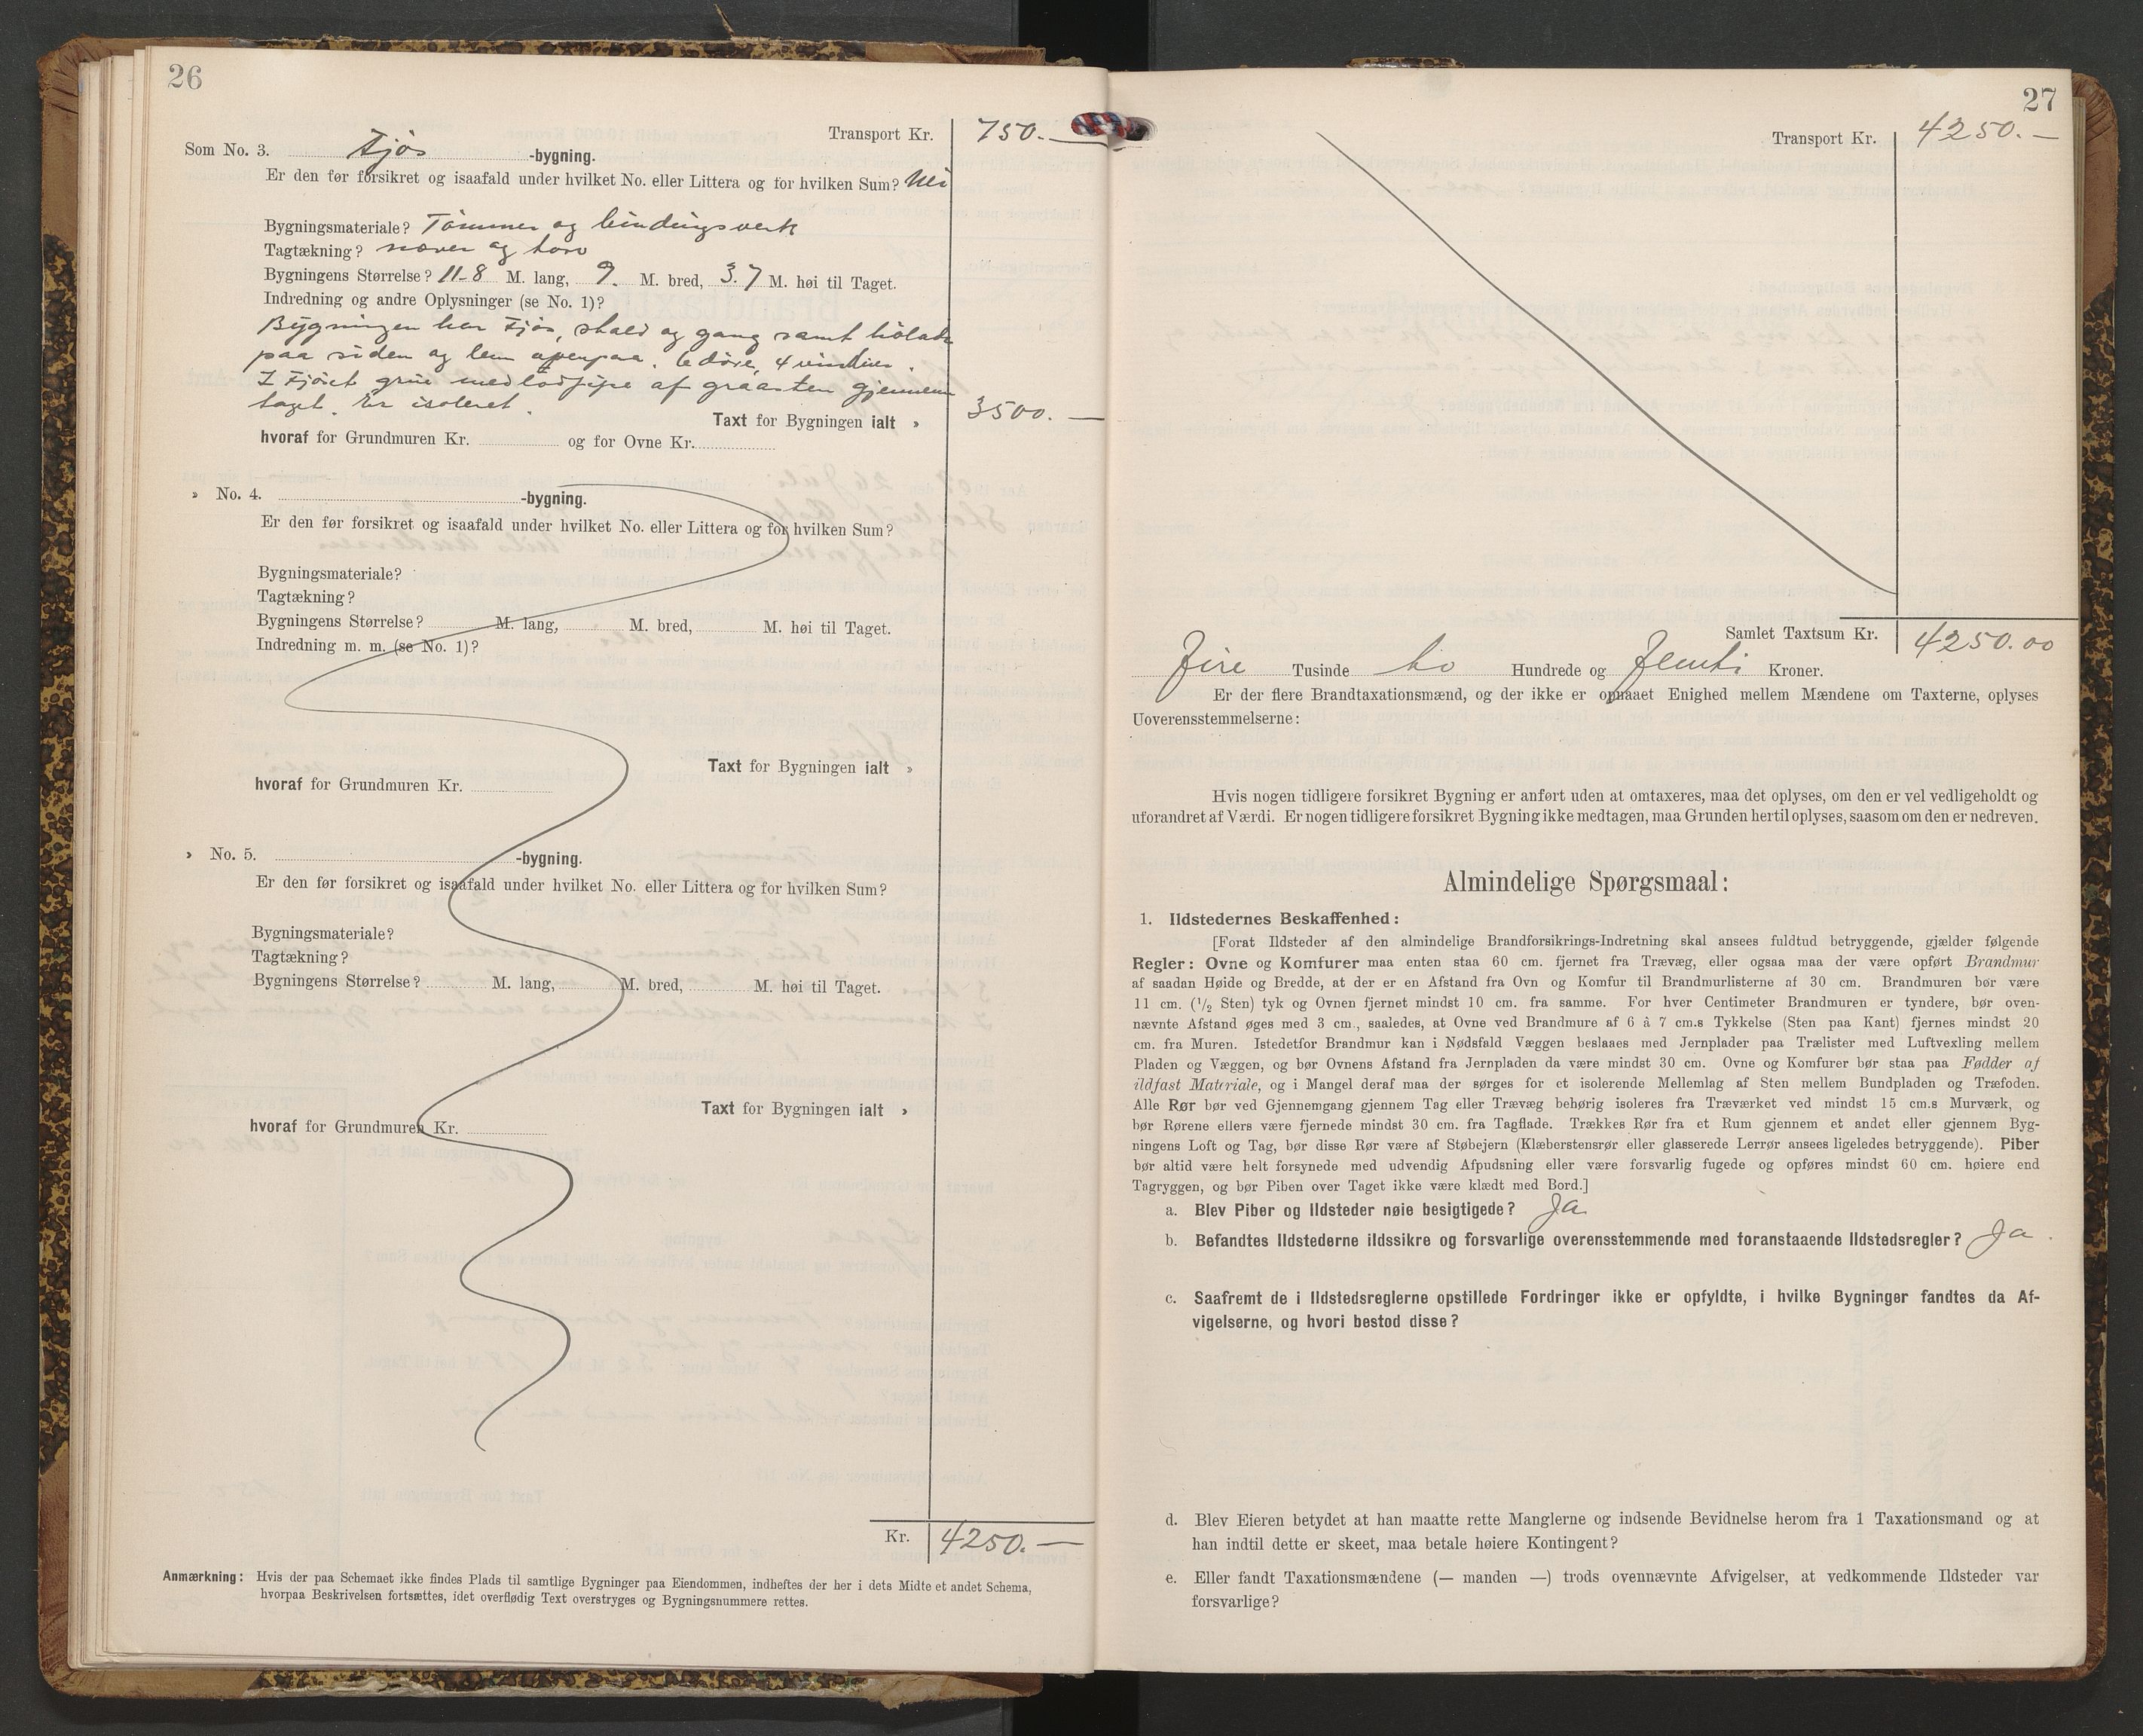 26
Transport Kr. 750. —
Som No. 3. Fjøs -bygning.
Er den før forsikret og isaafald under hvilket No. eller Littera og for hvilken Sum? Nei
Bygningsmateriale? Tømmer og bindingsverk
Tagtækning? næver og torv
Bygningens Størrelse? 11.8 M. lang, 9. M. bred, 3.7 M. høi til Taget.
Indredning og andre Oplysninger (se No. 1)?
Bygningen har Fjøs, stald og gang samt hölade
paa siden og lem ovenpaa. 6 döre, 4 vinduer.
I Fjöset grue med lödpipe af graasten gjennem
taget. Er isoleret.
Taxt for Bygningen ialt » 3500. —
hvoraf for Grundmuren Kr. og for Ovne Kr.
» No. 4. -bygning.
Er den før forsikret og isaafald under hvilket No. eller Littera og for hvilken Sum?
Bygningsmateriale?
Tagtækning?
Bygningens Størrelse? M. lang, M. bred, M. høi til Taget.
Indredning m. m. (se No. 1)?
Taxt for Bygningen ialt »
hvoraf for Grundmuren Kr.
» No. 5. -bygning.
Er den før forsikret og isaafald under hvilket No. eller Littera og for hvilken Sum?
Bygningsmateriale?
Tagtækning?
Bygningens Størrelse? M. lang, M. bred, M. høi til Taget.
Taxt for Bygningen ialt »
hvoraf for Grundmuren Kr.
Kr. 4250. —
Anmærkning: Hvis der paa Schemaet ikke findes Plads til samtlige Bygninger paa Eiendommen, indheftes der her i dets Midte et andet Schema,
hvorpaa Beskrivelsen fortsættes, idet overflødig Text overstryges og Bygningsnummere rettes.
27
Transport Kr. 4250. —
Samlet Taxtsum Kr. 4250.00
Fire Tusinde to Hundrede og Femti Kroner.
Er der flere Brandtaxationsmænd, og der ikke er opnaaet Enighed mellem Mændene om Taxterne, oplyses
Uoverensstemmelserne:
Hvis nogen tidligere forsikret Bygning er anført uden at omtaxeres, maa det oplyses, om den er vel vedligeholdt og
uforandret af Værdi. Er nogen tidligere forsikret Bygning ikke medtagen, maa Grunden hertil oplyses, saasom om den er nedreven.
Almindelige Spørgsmaal:
1. Ildstedernes Beskaffenhed:
[Forat Ildsteder af den almindelige Brandforsikrings-Indretning skal ansees fuldtud betryggende, gjælder følgende
Regler: Ovne og Komfurer maa enten staa 60 cm. fjernet fra Trævæg, eller ogsaa maa der være opført Brandmur
af saadan Høide og Bredde, at der er en Afstand fra Ovn og Komfur til Brandmurlisterne af 30 cm. Brandmuren bør være
11 cm. (1/2 Sten) tyk og Ovnen fjernet mindst 10 cm. fra samme. For hver Centimeter Brandmuren er tyndere, bør oven-
nævnte Afstand øges med 3 cm., saaledes, at Ovne ved Brandmure af 6 à 7 cm.s Tykkelse (Sten paa Kant) fjernes mindst 20
cm. fra Muren. Istedetfor Brandmur kan i Nødsfald Væggen beslaaes med Jernplader paa Trælister med Luftvexling mellem
Pladen og Væggen, og bør Ovnens Afstand fra Jernpladen da være mindst 30 cm. Ovne og Komfurer bør staa paa Fødder af
ildfast Materiale, og i Mangel deraf maa der sørges for et isolerende Mellemlag af Sten mellem Bundpladen og Træfoden.
Alle Rør bør ved Gjennemgang gjennem Tag eller Trævæg behørig isoleres fra Træværket ved mindst 15 cm.s Murværk, og
bør Rørene ellers være fjernede mindst 30 cm. fra Tagflade. Trækkes Rør fra et Rum gjennem et andet eller gjennem Byg-
ningens Loft og Tag, bør disse Rør være af Støbejern (Klæberstensrør eller glasserede Lerrør ansees ligeledes betryggende). Piber
bør altid være helt forsynede med udvendig Afpudsning eller være forsvarlig fugede og opføres mindst 60 cm. høiere end
Tagryggen, og bør Piben over Taget ikke være klædt med Bord.]
a. Blev Piber og Ildsteder nøie besigtigede? Ja
b. Befandtes Ildstederne ildssikre og forsvarlige overensstemmende med foranstaaende Ildstedsregler? Ja.
c. Saafremt de i Ildstedsreglerne opstillede Fordringer ikke er opfyldte, i hvilke Bygninger fandtes da Af-
vigelserne, og hvori bestod disse?
d. Blev Eieren betydet at han maatte rette Manglerne og indsende Bevidnelse herom fra 1 Taxationsmand og at
han indtil dette er skeet, maa betale høiere Kontingent?
e. Eller fandt Taxationsmændene (— manden —) trods ovennævnte Afvigelser, at vedkommende Ildsteder var
forsvarlige?